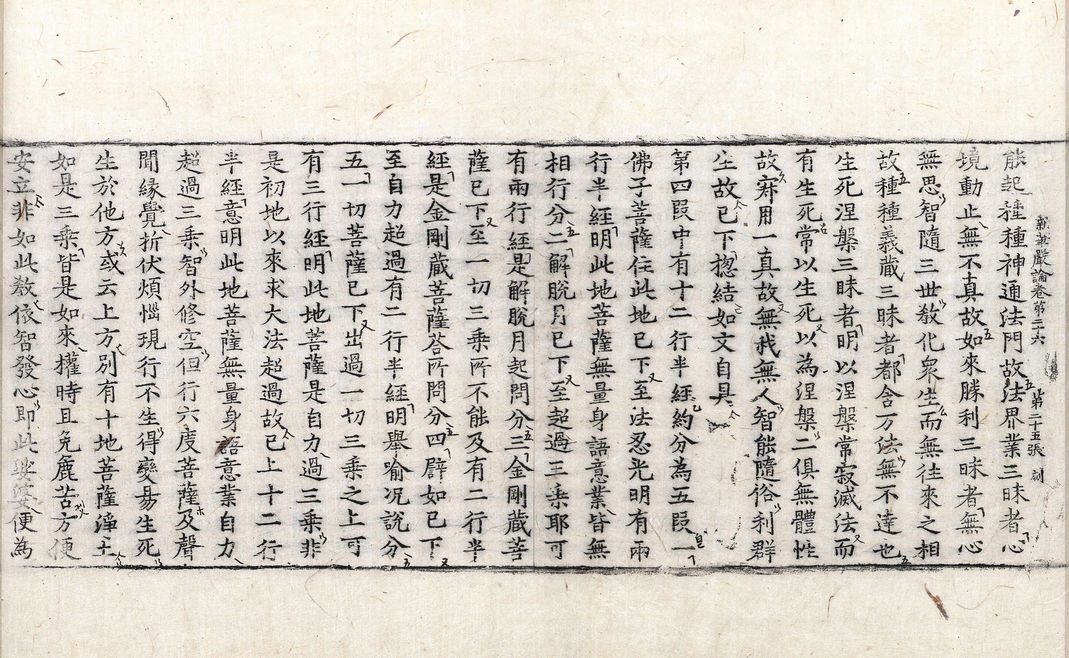 新華嚴論卷第二十六 第二十五張 刻
能起種種神通法門故法界業三昧者心
境動止無不真故如來勝利三昧者無心
無思智隨三世敎化衆生而無往來之相
故種種義藏三昧者都含万法無不達也
生死涅槃三昧者明以涅槃常寂滅法而
有生死常以生死以為涅槃二俱無體性
故齊用一真故無我無人智能隨俗利群
生故已下惣結如文自具
第四段中有十二行半經約分為五段一
佛子菩薩住此地已下至法忍光明有兩
行半經明此地菩薩無量身語意業皆無
相行分二解脫月已下至超過三乘耶可
有兩行經是解脫月起問分三金剛藏菩
薩已下至一切三乘所不能及有二行半
經是金剛藏菩薩荅所問分四譬如已下
至自力超過有二行半經明舉喻况說分
五一切菩薩已下出過一切三乘之上可
有三行經明此地菩薩是自力過三乘非
是初地以來求大法超過故已上十二行
半經意明此地菩薩無量身語意業自力
超過三乘智外修空但行六度菩薩及聲
聞緣覺折伏煩惱現行不生得變易生死
生於他方或云上方別有十地菩薩淨土
如是三乘皆是如來權時且免麁苦方便
安立非如此敎依智發心即此娑婆便為